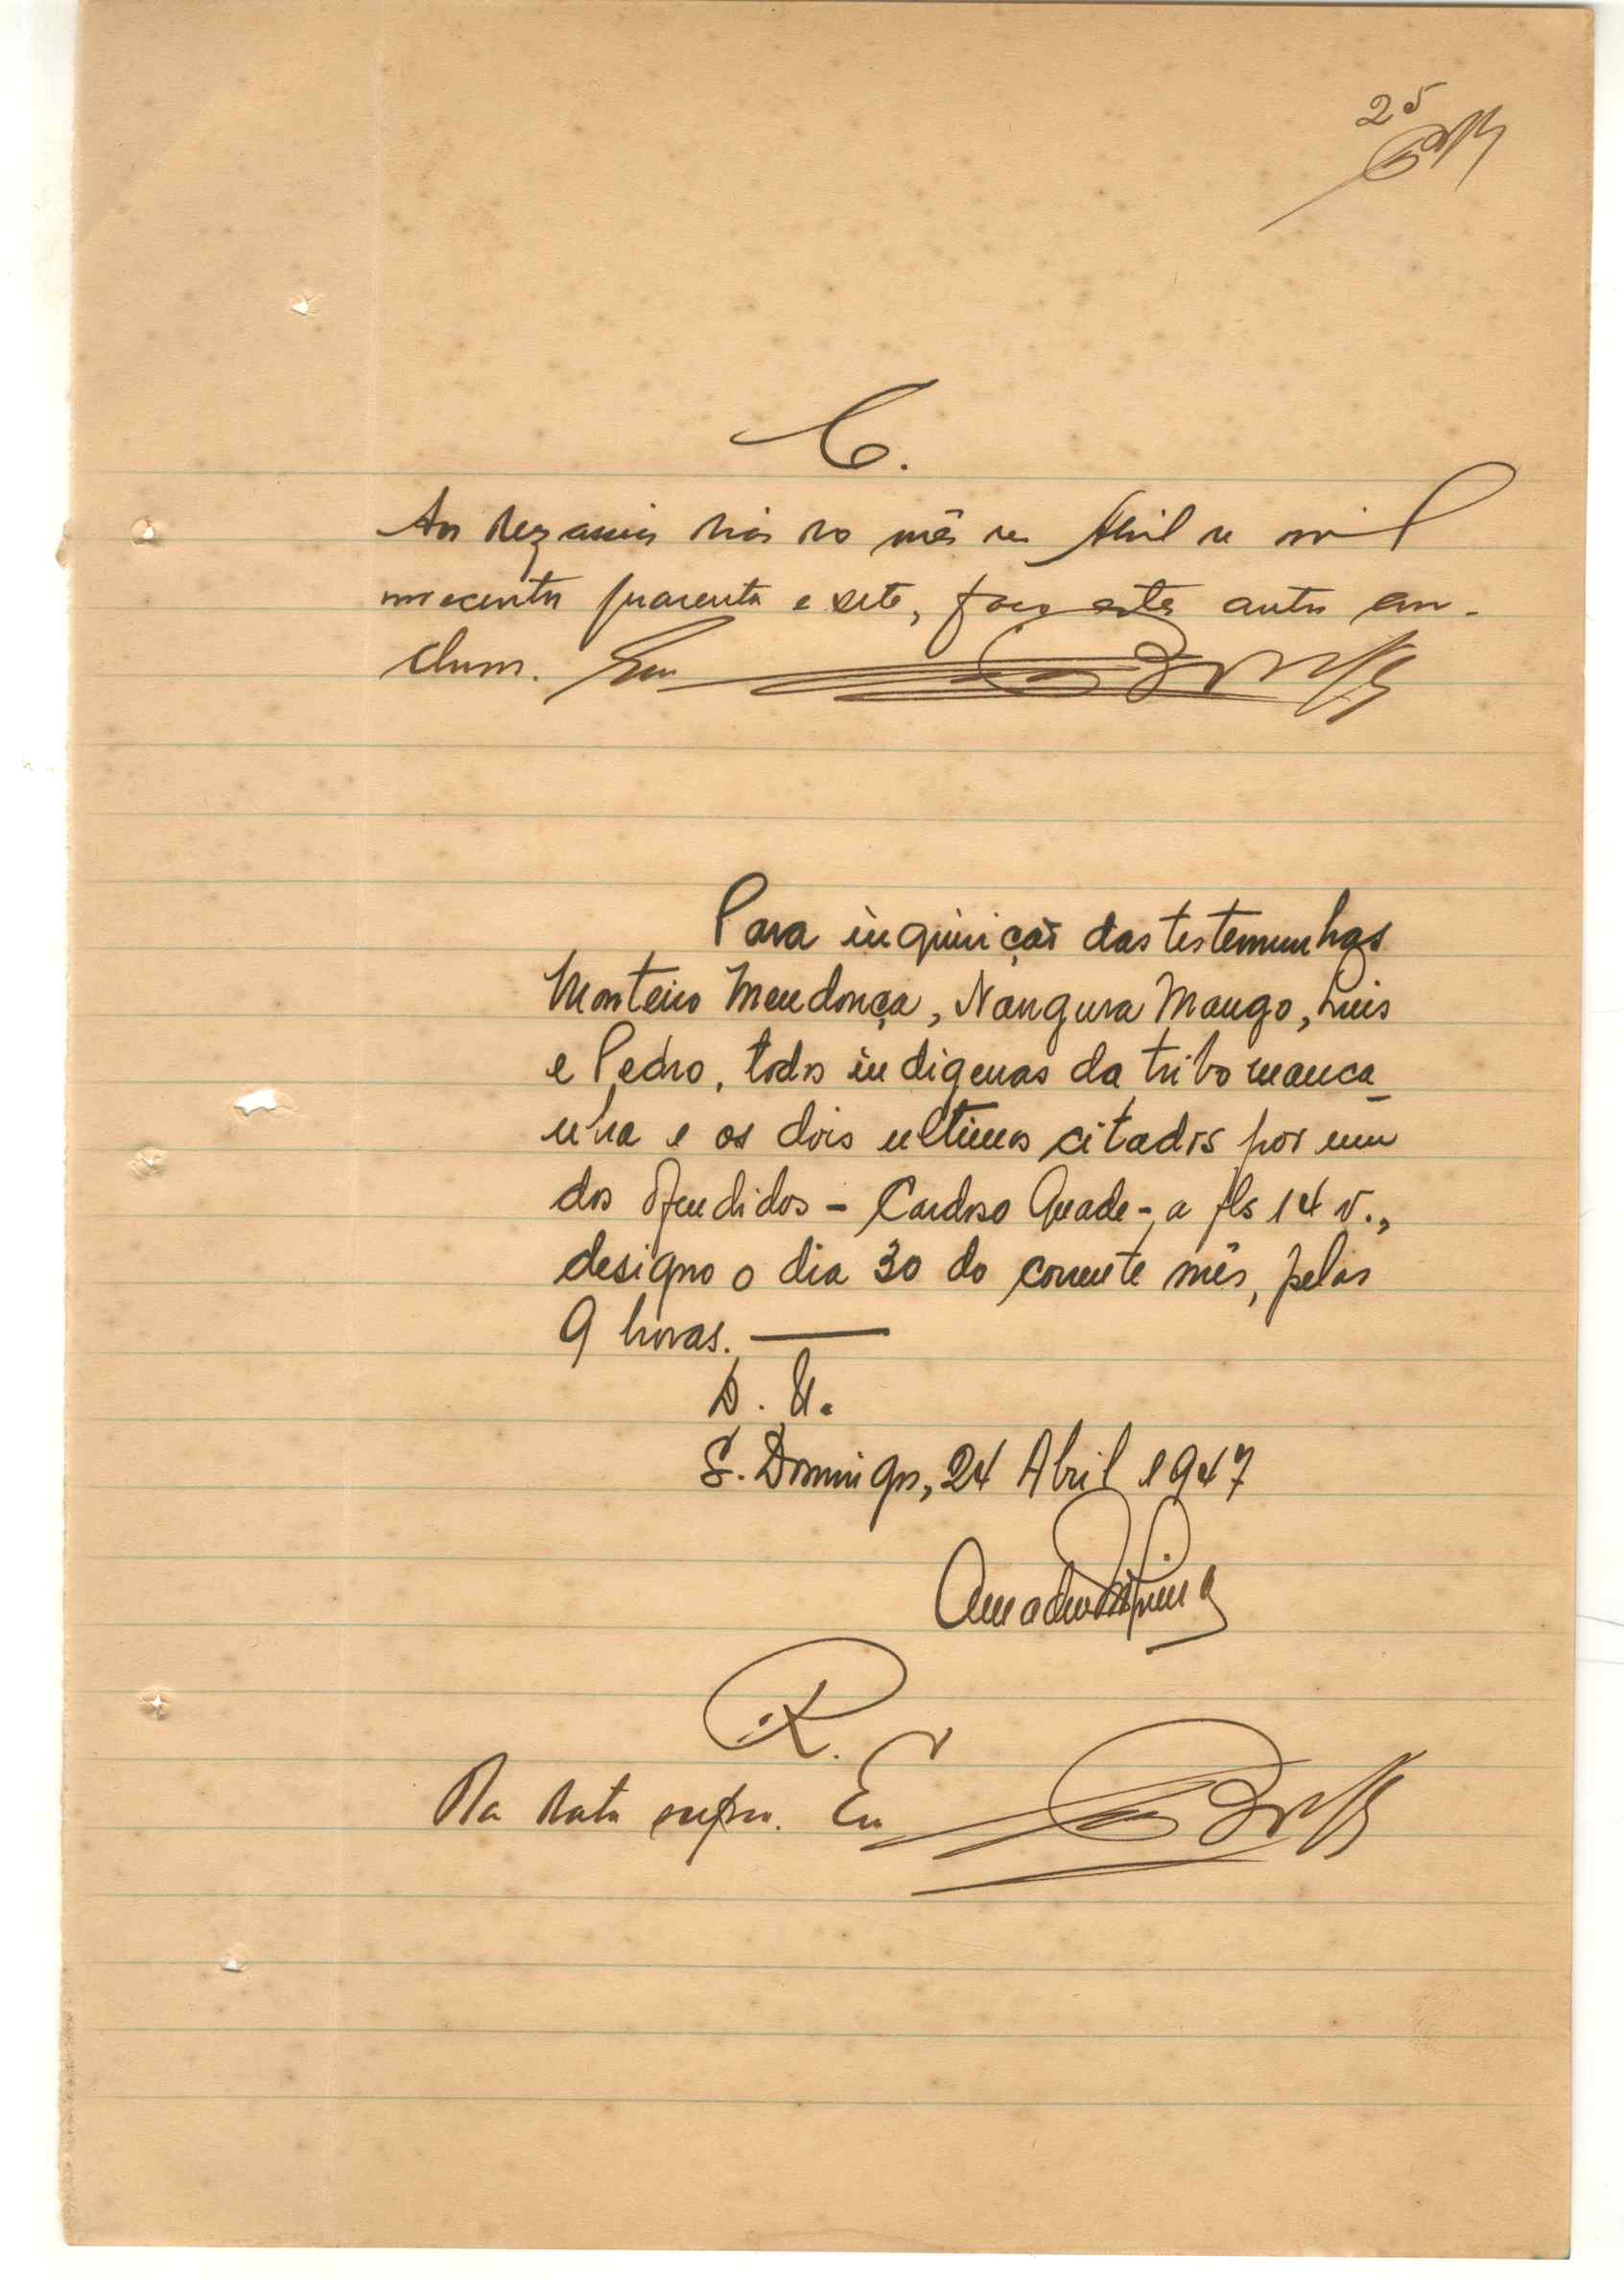 25
C.
Aos dezasseis dias do mês de Abril de mil
novecentos quarenta e sete, faço estes autos con-
clusos. Eu
Para inquirição das testemunhas
Monteiro Mendonça, Nangura Mango, Luis
e Pedro, todos indigenas da tribo manca_
nha e os dois ultimos citados por um
dos ofendidos - Cardoso Quade - a fls 14 v.,
designo o dia 30 do corrente mês, pelas
9 horas. ——
D. N.
S. Domingos, 24 Abril 1947
R.
Na data supra. Eu